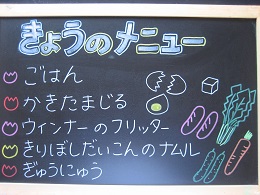 きょうのメニュー
ごはん
かきたまじる
ウィンナーのフリッター
きりぼしだいこんのナムル
ぎゅうにゅう